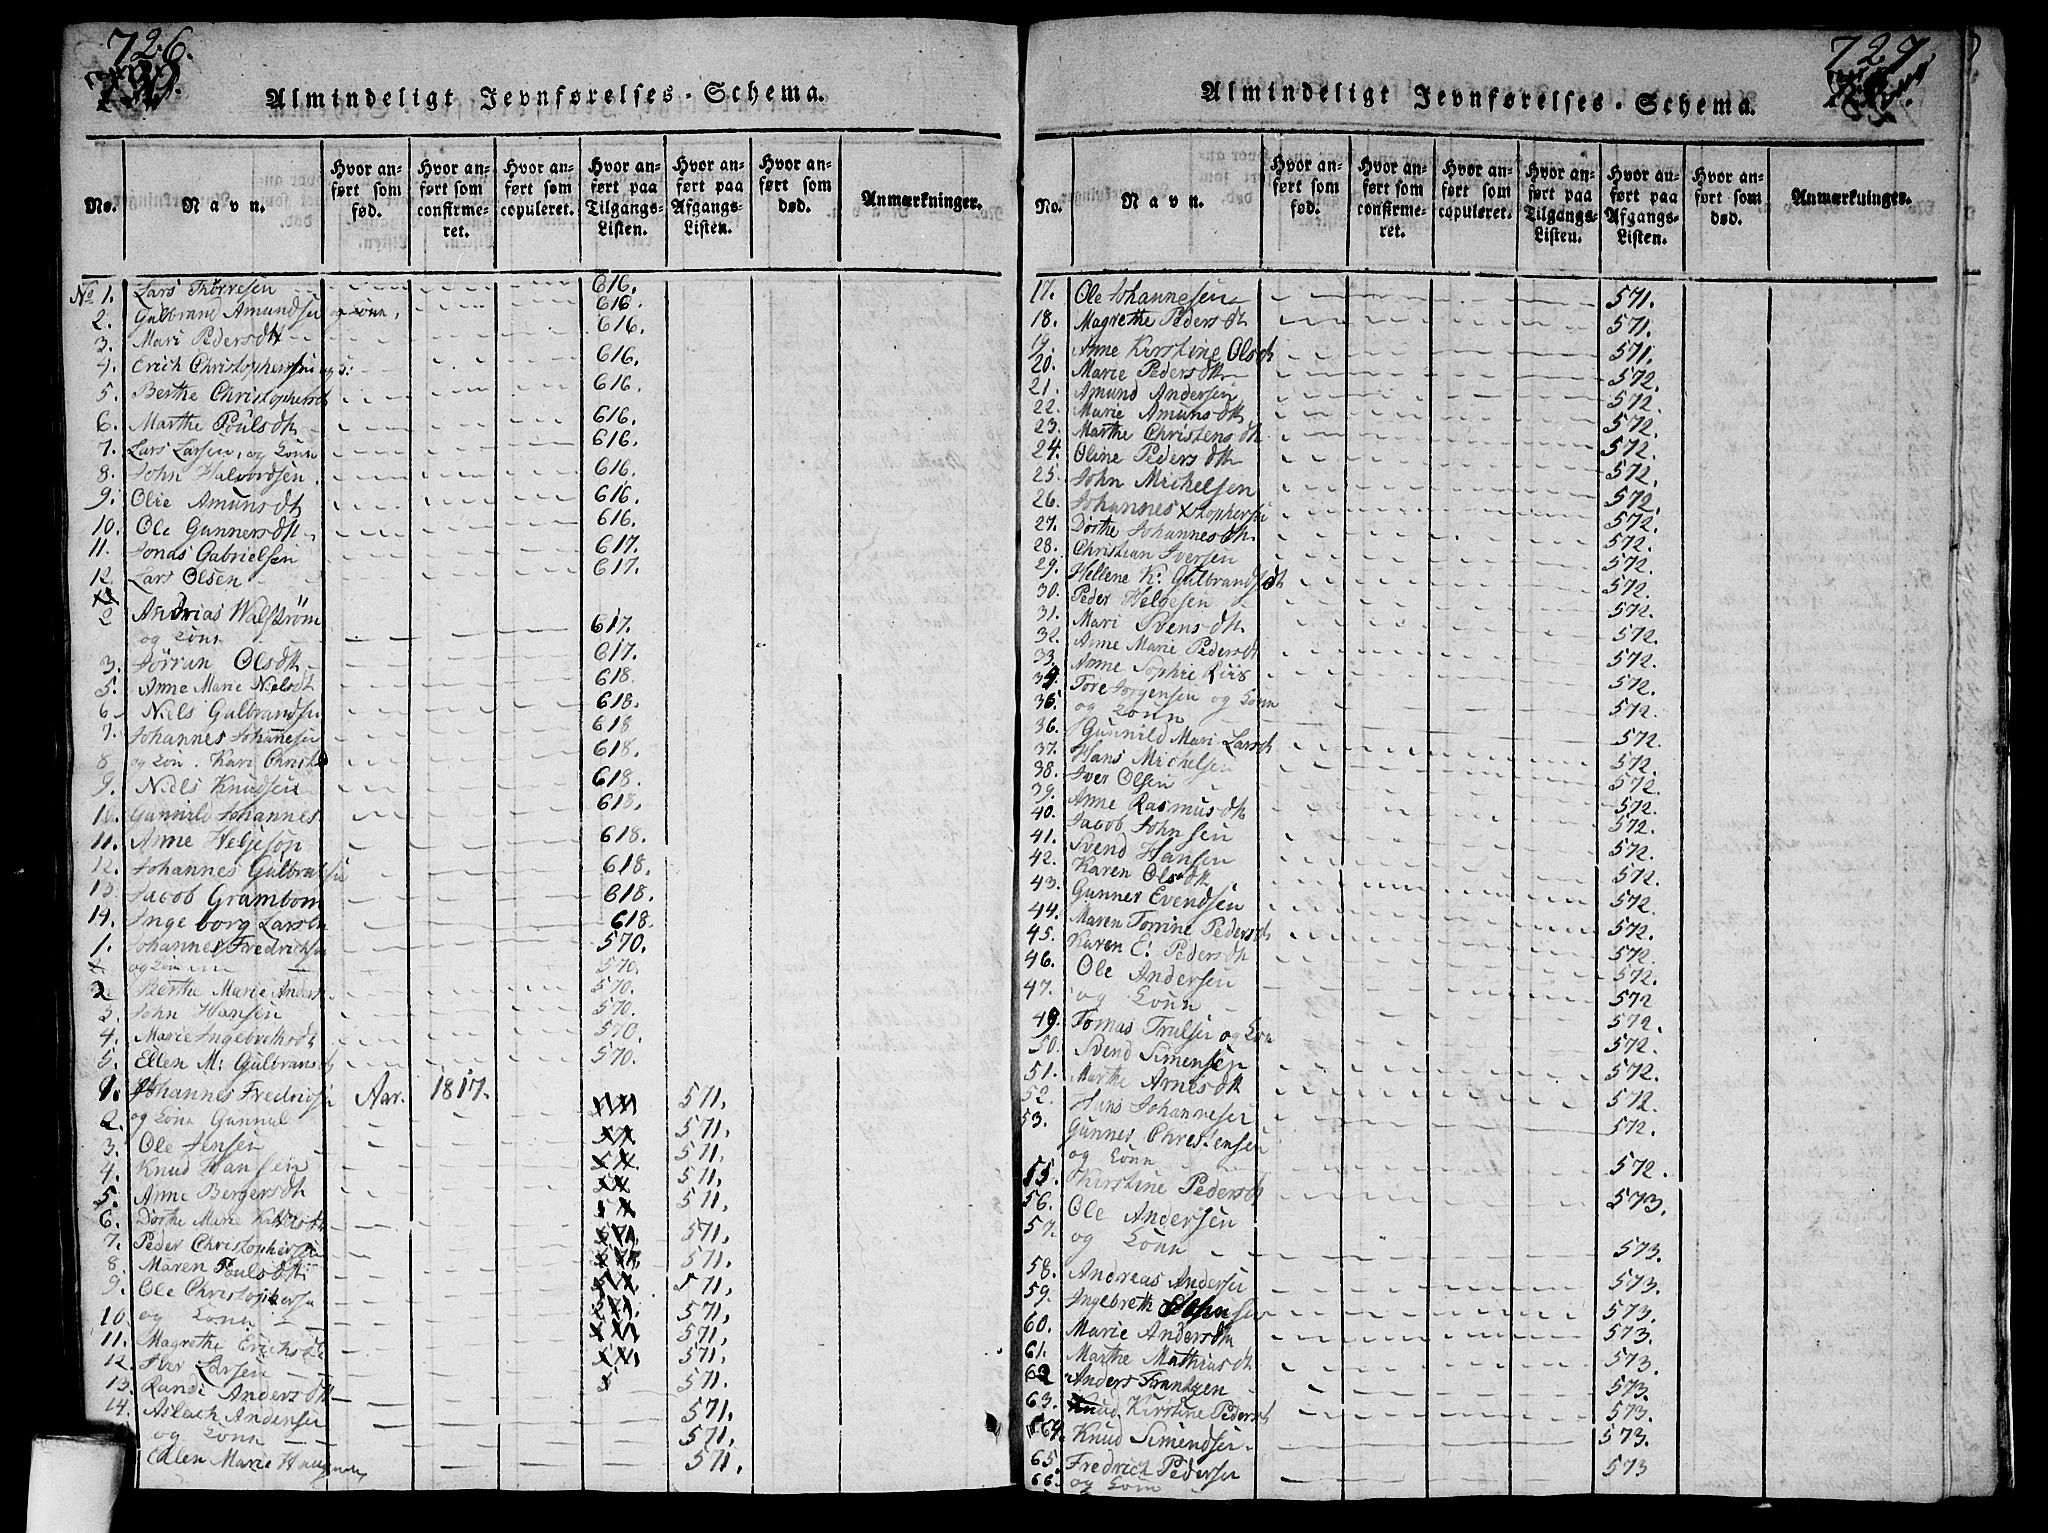 726.
Almindeligt Jevnførelses-Schema.
No. Navn. Hvor anført som fød. Hvor anført som confirmeret. Hvor anført som copuleret. Hvor anført paa Tilgangs-Listen. Hvor anført paa Afgangs-Listen. Hvor anført som død. Anmærkninger.
No 1. Lars Thorresen 616.
2. Gulbrand Amundsen og Konn, 616.
3. Mari Pedersdtr 616.
4. Erich Christophersen 616.
5. Berthe Christophersd 616.
6. Marthe Poulsdtr 616.
7. Lars Larsen, og Konn 616.
8. John Halvordsen 616.
9. Olie Amunsdtr 616.
10. Ole Gunnersdtr 616.
11. Jonas Gabrielsen 617.
12. Lars Olsen 617.
2 Andrias Walstrøm
og Konn 617.
3. Jørran Olsdtr 617.
5. Anne Marie Nielsdtr 618.
6 Niels Gulbrandsen 618.
7. Johannes Johannesen 618
8 og Kon. Kari Christ 618.
9. Niels Knudsen 618.
10. Gunnild Johannes 618.
11. Anne Helgeson 618.
12. Johannes Gulbrandsen 618.
13 Jacob Grambom 618.
14. Ingeborg Larsen 618.
1. Johannes Fredrichsen 570.
2 og Konn 570.
2 Berthe Marie Anders 570.
3. John Hansen 570.
4. Marie Ingebrethsdtr 570.
5. Ellen M: Gulbransd 570.
1. Johannes Fredrichsen Aar. 1817. 571.
2. og Konn Gunnul 571.
3. Ole Jensen 571.
4. Knud Hansen 571.
5. Anne Bergersdtr 571.
6. Dorthe Marie 571.
7. Peder Christophersen 571.
8. Maren Poulsdtr 571.
9. Ole Christophersen 571,
10 og Konn 571.
11. Magrethe Erichsdtr 571.
12. Iver Larsen 571.
13. Randi Andersdtr 571.
14. Aslach Andersen 571.
og Konn 571.
Ellen Marie 571.
727.
Almindeligt Jevnførelses-Schema.
No. Navn. Hvor anført som fød. Hvor anført som confirmeret. Hvor anført som copuleret. Hvor anført paa Tilgangs-Listen. Hvor anført paa Afgangs-Listen. Hvor anført som død. Anmærkninger.
17. Ole Johannesen 571.
18. Magrethe Pedersdtr 571.
19. Anne Kirstine Olsd 571.
20. Marie Pedersdtr 572.
21. Amund Andersen 572.
22. Marie Amunsdtr 572.
23. Marthe Christensdtr 572.
24. Oline Pedersdtr 572.
25. John Michelsen 572.
26. Johannes Xstophersen 572.
27. Dorthe Johannesdtr 572.
28. Christian Iversen 572.
29. Hellene K: Gulbrandsd 572.
30. Peder Helgesen 572.
31. Mari Svensdtr 572.
32. Anne Marie Pedersd 572.
33. Anne Sophie Riis 572.
34 Tore Jorgensen og Konn 572.
35 og Konn
36. Gunnild Mari Larsd 572.
37. Hans Michelsen 572.
38. Iver Olsen 572.
39. Anne Rasmusdtr 572.
40. Jacob Johnsen 572.
41. Svend Hansen 572.
42. Karen Olsdtr 572.
43. Gunner Evendsen 572.
44. Maren Torrine Pedersd 572.
45. Karen E: Pedersdtr 572.
46. Ole Andersen 572.
47. og Konn 572
49. Tomas Trulsen og Kon 572.
50. Svend Simensen 572.
51. Marthe Arnesdtr 572.
52. Hans Johannesen 572.
53. Gunner Christensen 572.
og Konn
55. Kirstine Pedersd 572.
56. Ole Andersen 573.
57. og Konn 573.
58. Andreas Andersen 573.
59. Ingebreth Johnsen 573.
60. Marie Andersdtr 573.
61. Marthe Mathiasdtr 573.
62 Anders Frantzen 573.
63. Kirstine Pedersd 573.
64. Knud Simendsen 573.
65. Fredrich Pedersen 573
66. og Konn